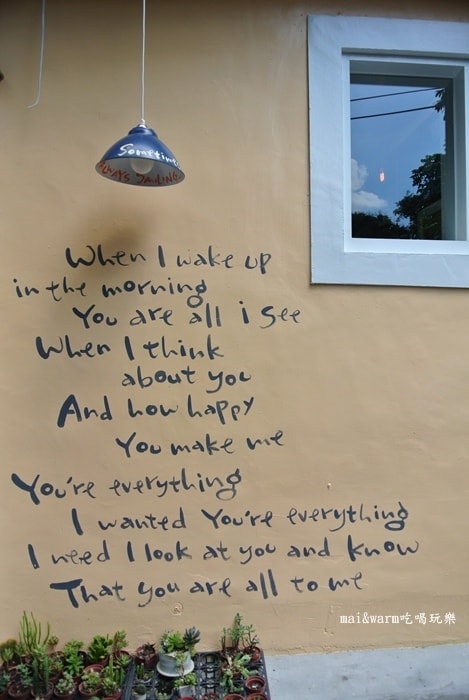 Sometim
ALWAYS SMILING
When I wake up
in the morning
You are all i see
When I think
about you
And how happy
You make me
You're everything
I wanted You're everything
I need I look at you and know
That you are all to me
mai&warm吃喝玩樂